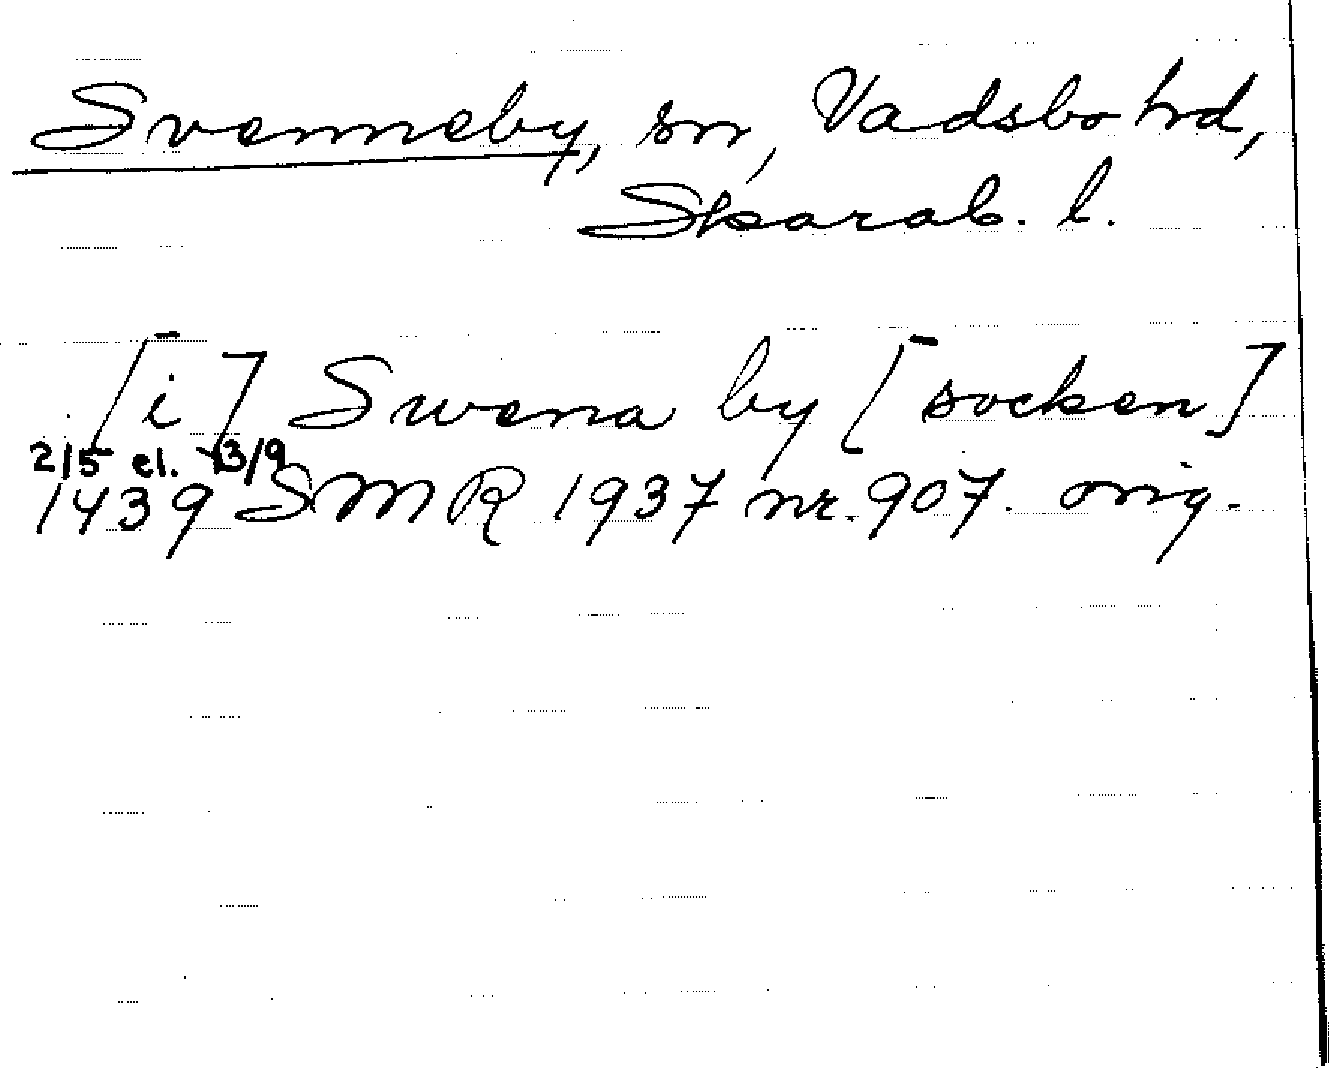 Svenneby, sn, Vadsbo hd,
Skarab. l.
[i] Swena by [socken]
2/5 el. 13/9
1439 SMR 1937 nr. 907. orig.